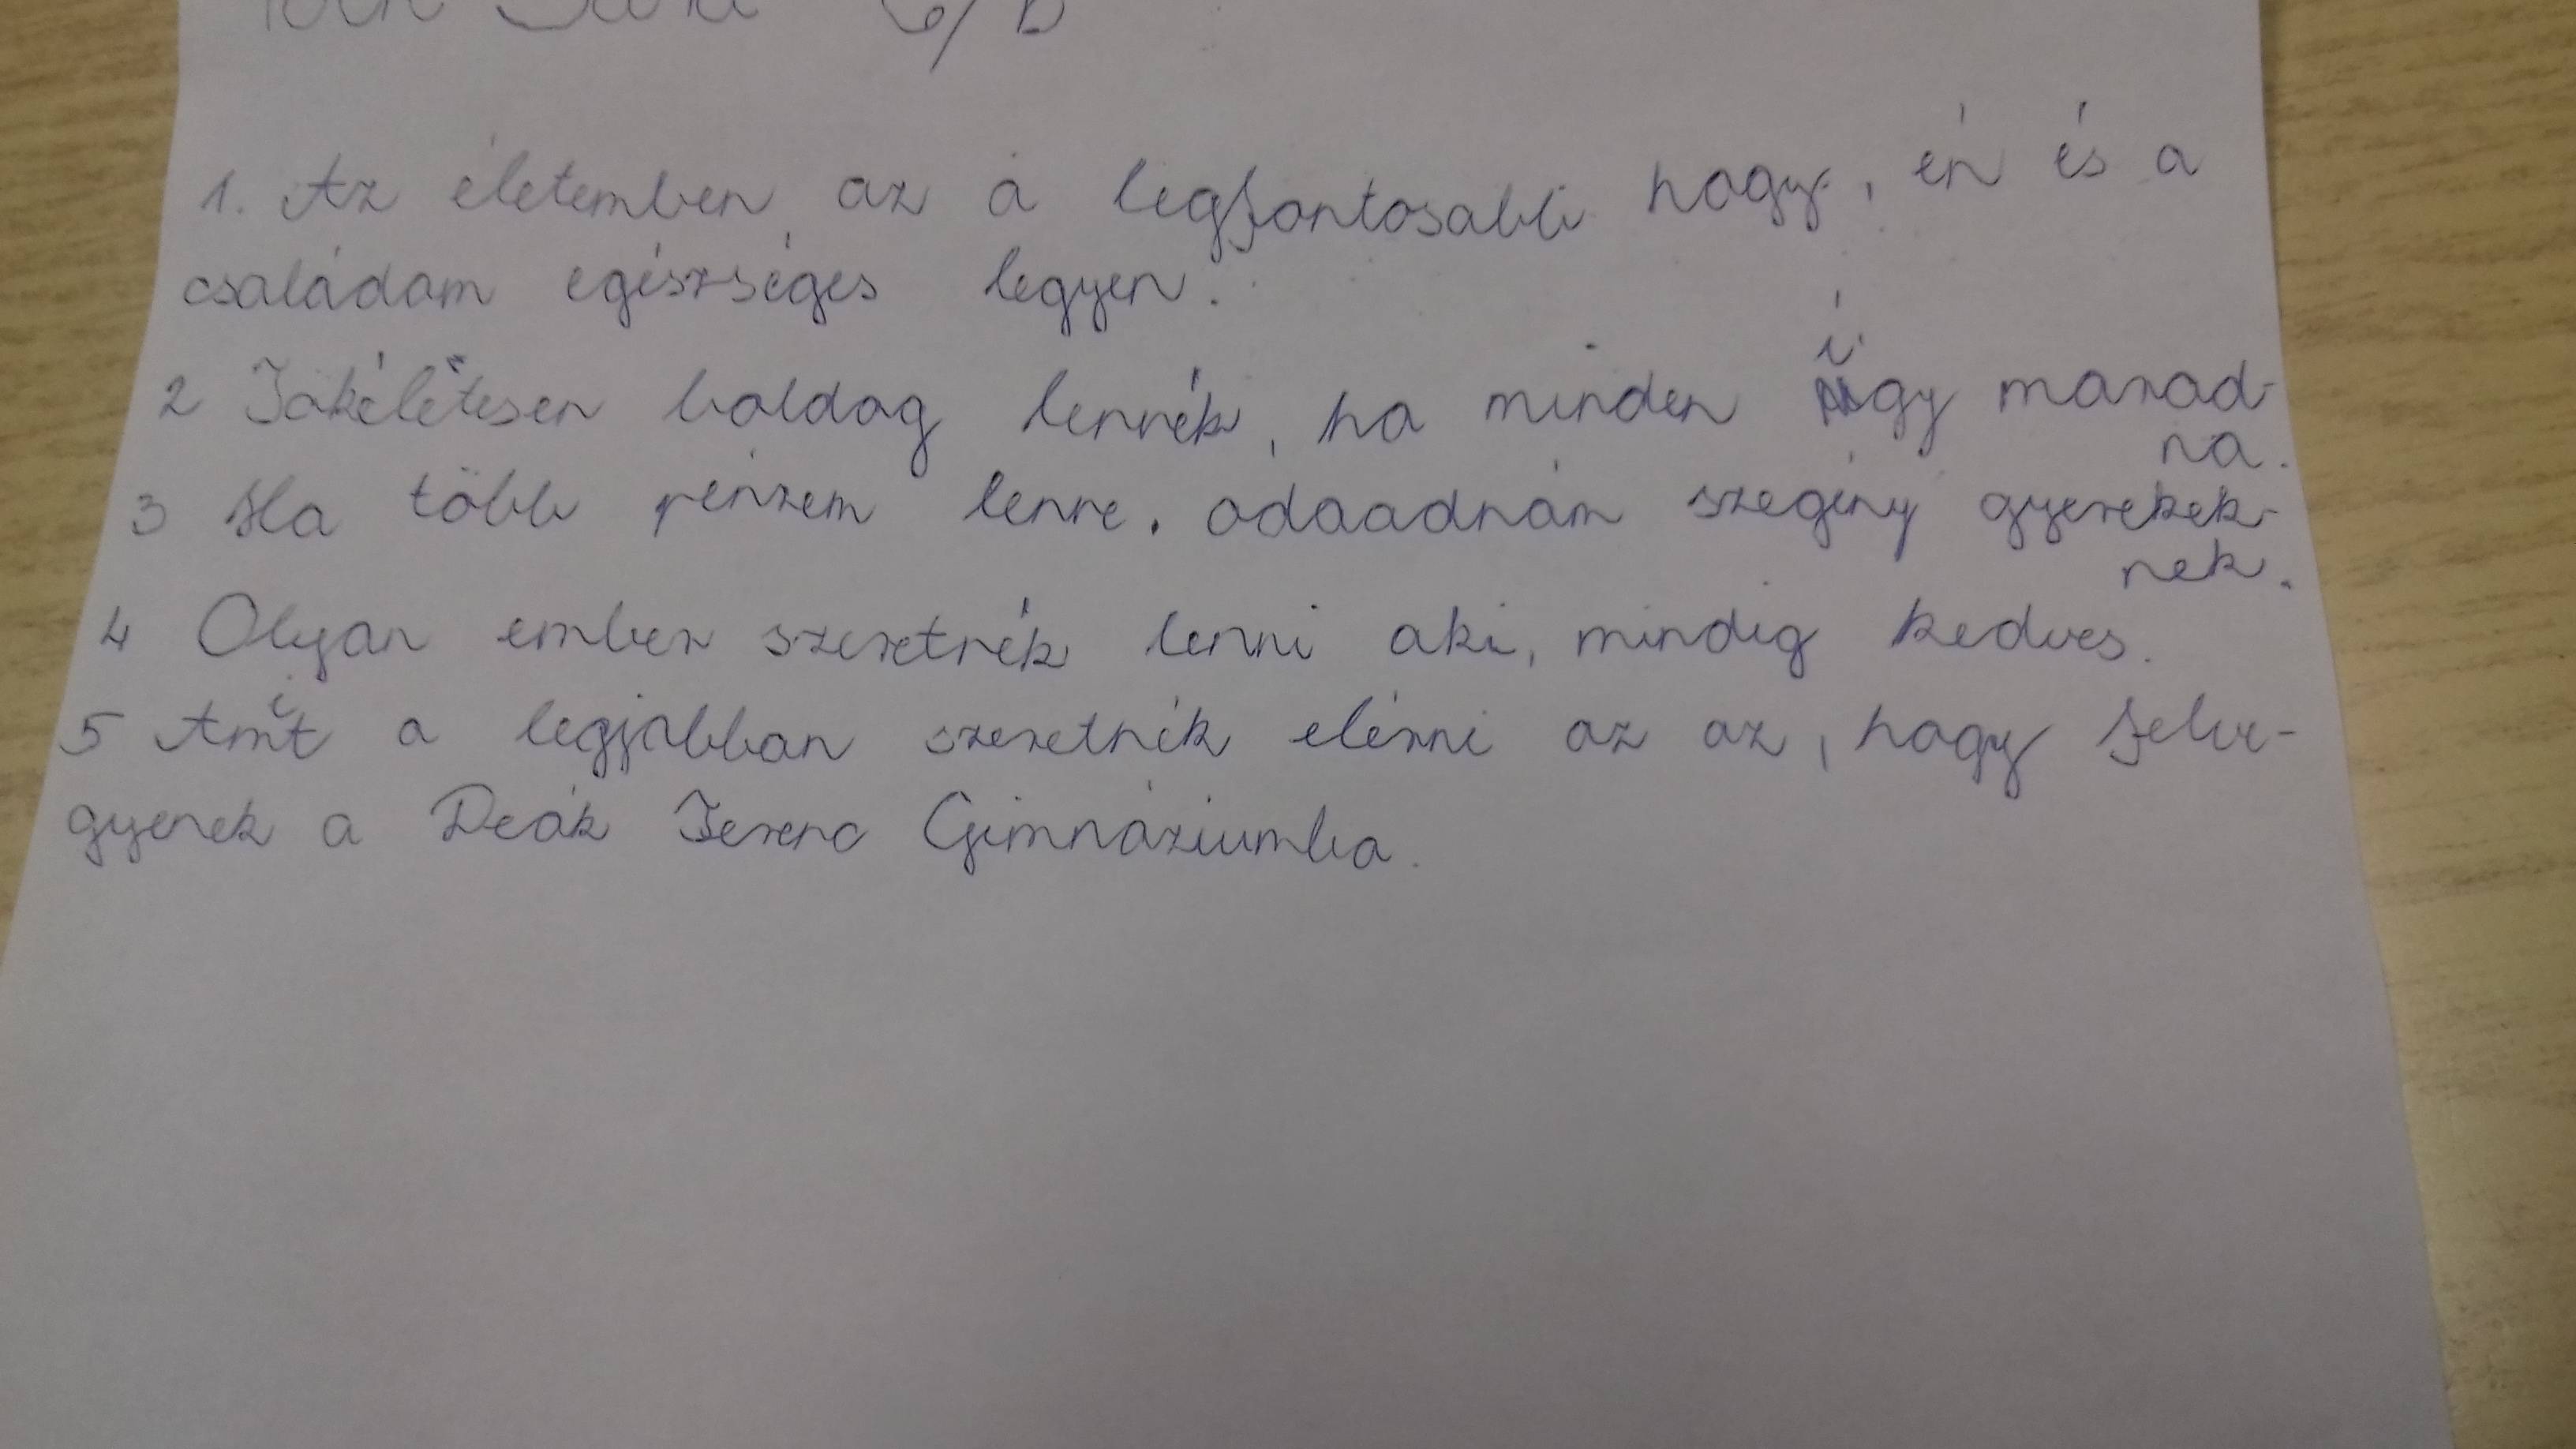 6/b
1. Az életemben az a legfontosabb hogy, én és a
családom egészséges legyen.
2 Tökéletesen boldog lennék, ha minden így marad-
na.
3 Ha több pénzem lenne. odaadnám szegény gyerekek-
nek.
4 Olyan ember szeretnék lenni aki, mindig kedves.
5 Amit a legjobban szeretnék elérni az az, hogy felve-
gyenek a Deák Ferenc Gimnáziumba.